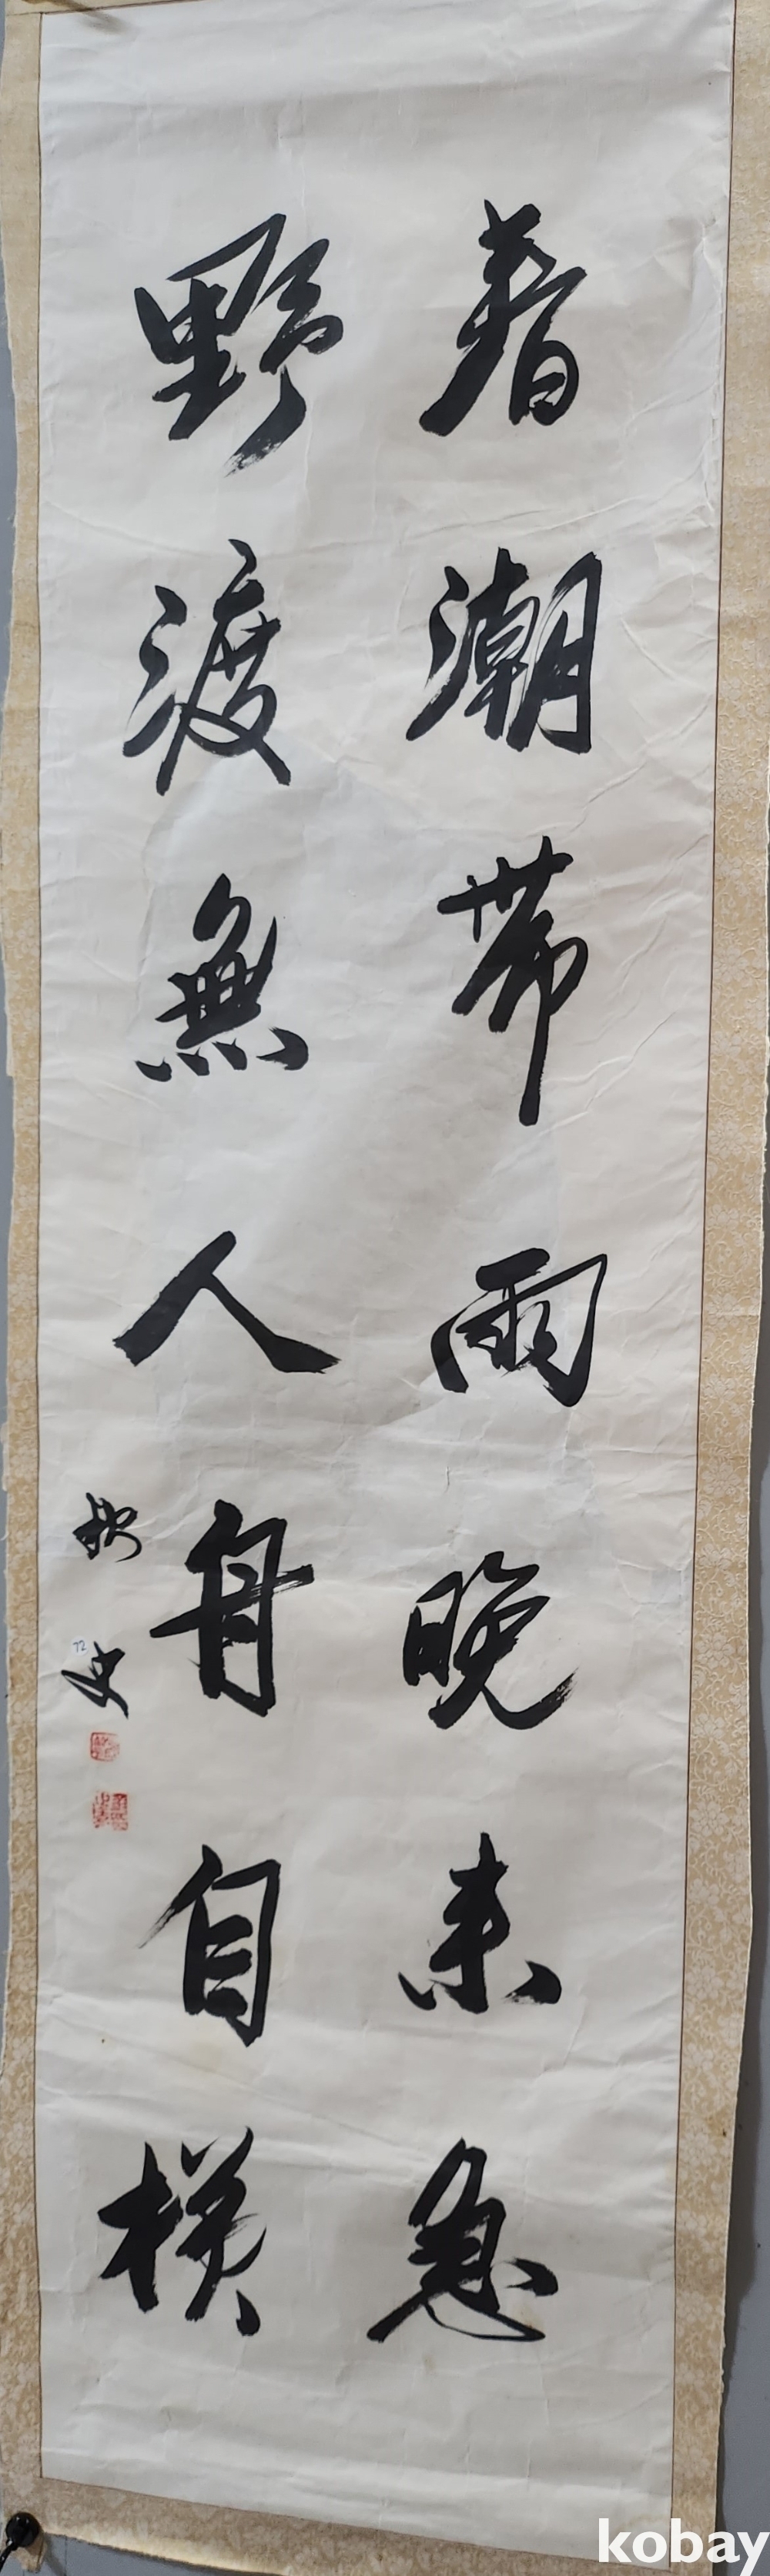 春潮帶雨晚來急
野渡無人舟自橫
72
kobay